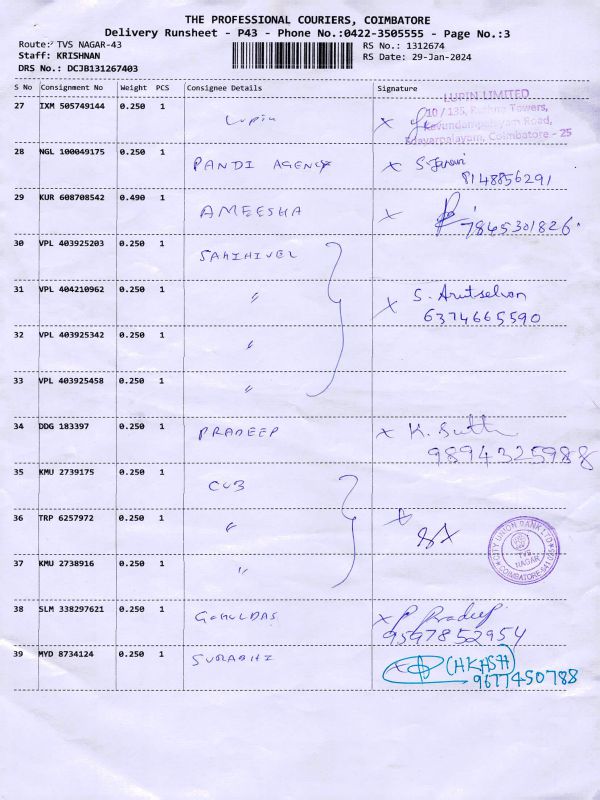 THE PROFESSIONAL COURIERS, COIMBATORE
Delivery Runsheet - P43 - Phone No.:0422-3505555 - Page No.:3
Route: TVS NAGAR-43 RS No.: 1312674
Staff: KRISHNAN RS Date: 29-Jan-2024
DRS No.: DCJB131267403
S No Consignment No Weight PCS Consignee Details Signature
LUPIN LIMITED
27 IXM 505749144 0.250 1 Lupin X
10 / 135, Towers,
Kavundampalayam Road,
Edayarpalayam, Coimbatore - 25
28 NGL 100049175 0.250 1 PANDI AGENCY X
8148856291
29 KUR 608708542 0.490 1 AMEESHA X
7845301826
30 VPL 403925203 0.250 1
31 VPL 404210962 0.250 1 〃 X S. Arutselvan
6374665590
32 VPL 403925342 0.250 1 〃
33 VPL 403925458 0.250 1 〃
34 DDG 183397 0.250 1 PRADEEP X K.
9894325988
35 KMU 2739175 0.250 1 CUB
36 TRP 6257972 0.250 1 〃 X
CITY UNION BANK LTD
TVS
NAGAR
COIMBATORE-641 025
37 KMU 2738916 0.250 1 〃
38 SLM 338297621 0.250 1 GOKULDAS X P Pradeep
9597852954
39 MYD 8734124 0.250 1 SURABHI X (AKASH)
9677450788